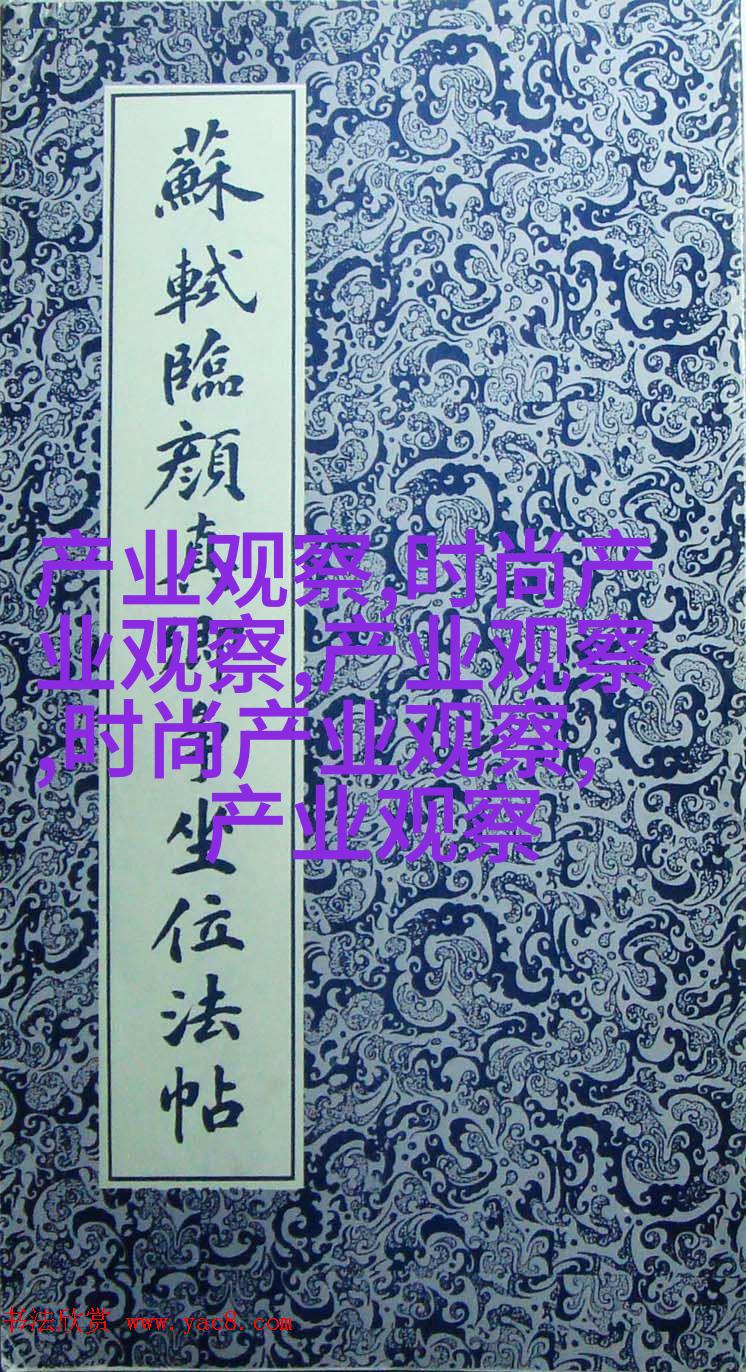 蘇軾臨顔真卿争坐位法帖
产业观察,时尚产
业观察,产业观察
,时尚产业观察,
产业观察
书法欣赏 www.yac8.com